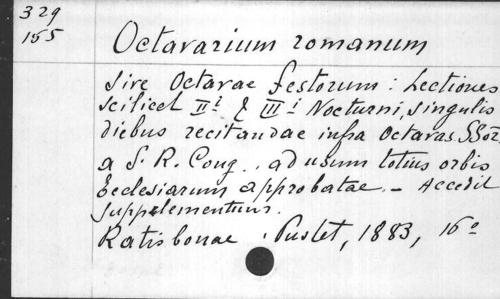 329
155
Octavarium romanum
sive Octavae festorum: Lectiones
scilicet IIi & IIIi Nocturni, singulis
diebus recitandae infra octavas SSor.
a S. R. Cong. . ad usum totius orbis
Ecclesiarum approbatae. - Accedit
supplementum.
Ratisbonae. Pustet, 1883, 16o